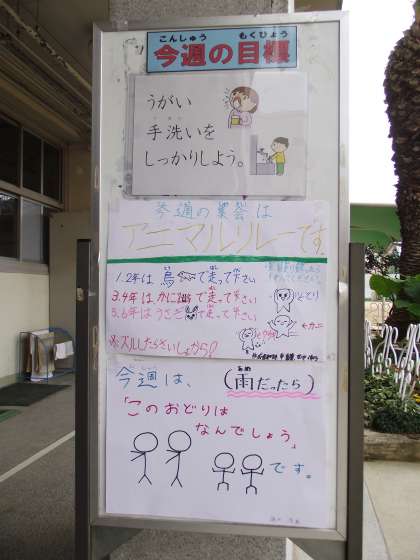 こんしゅう もくひょう
今週の目標
うがい
手洗いを
しっかりしよう。
今週の集会は
アニマルリレーです。
1.2年は鳥で走って下さい
3.4年はかにで走って下さい
5.6年はうさぎで走って下さい
とり
←カニ
※ズルしたらさいしょから!
今週は、(雨だったら)
あめ
「このおどりは
なんでしょう」
です。